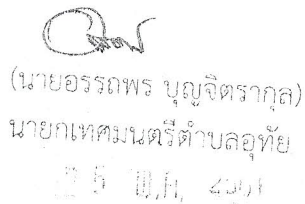 (นายอรรถพร บุญจิตรากุล)
นายกเทศมนตรีตำบลอุทัย
25